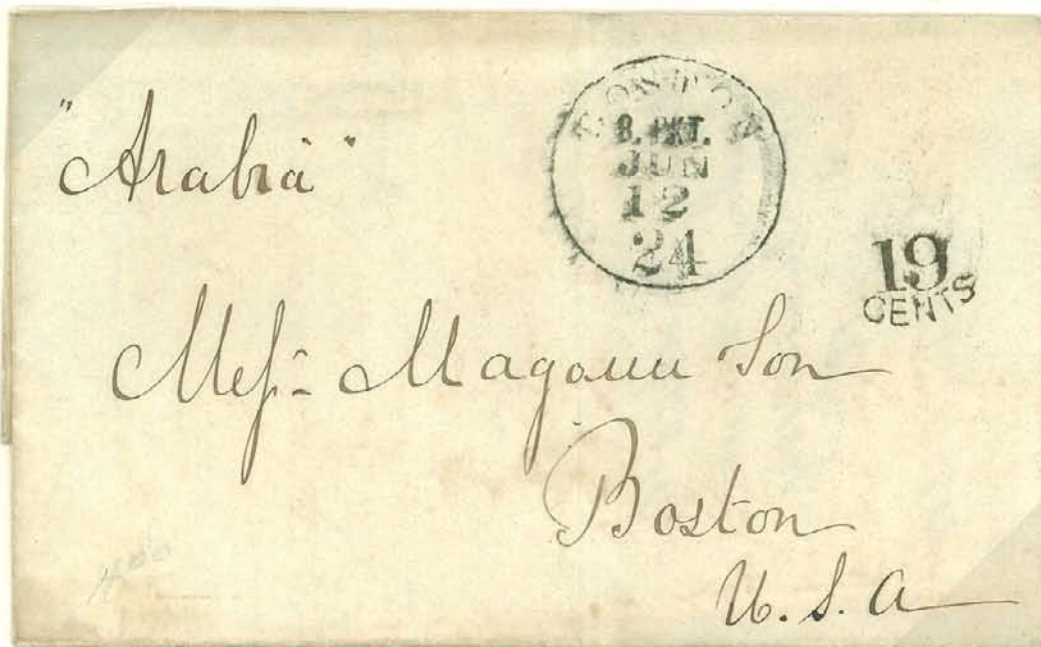 "Arabia"
BOSTON
B. PKT.
JUN
12
24
19
CENTS
Mess- Magoun Son
Boston
U.S.A